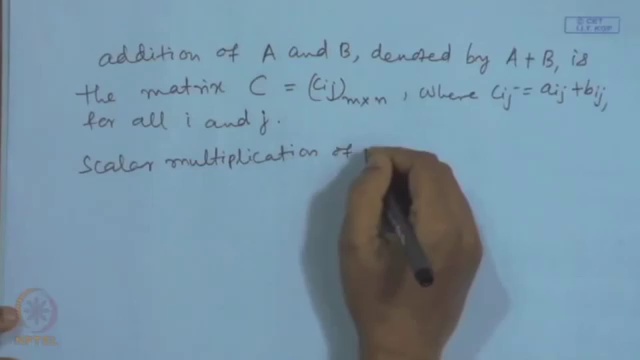 © CET
I.I.T. KGP
addition of A and B, denoted by A + B, is
the matrix C = (cij)m×n, where cij = aij + bij,
for all i and j.
Scalar multiplication of
NPTEL